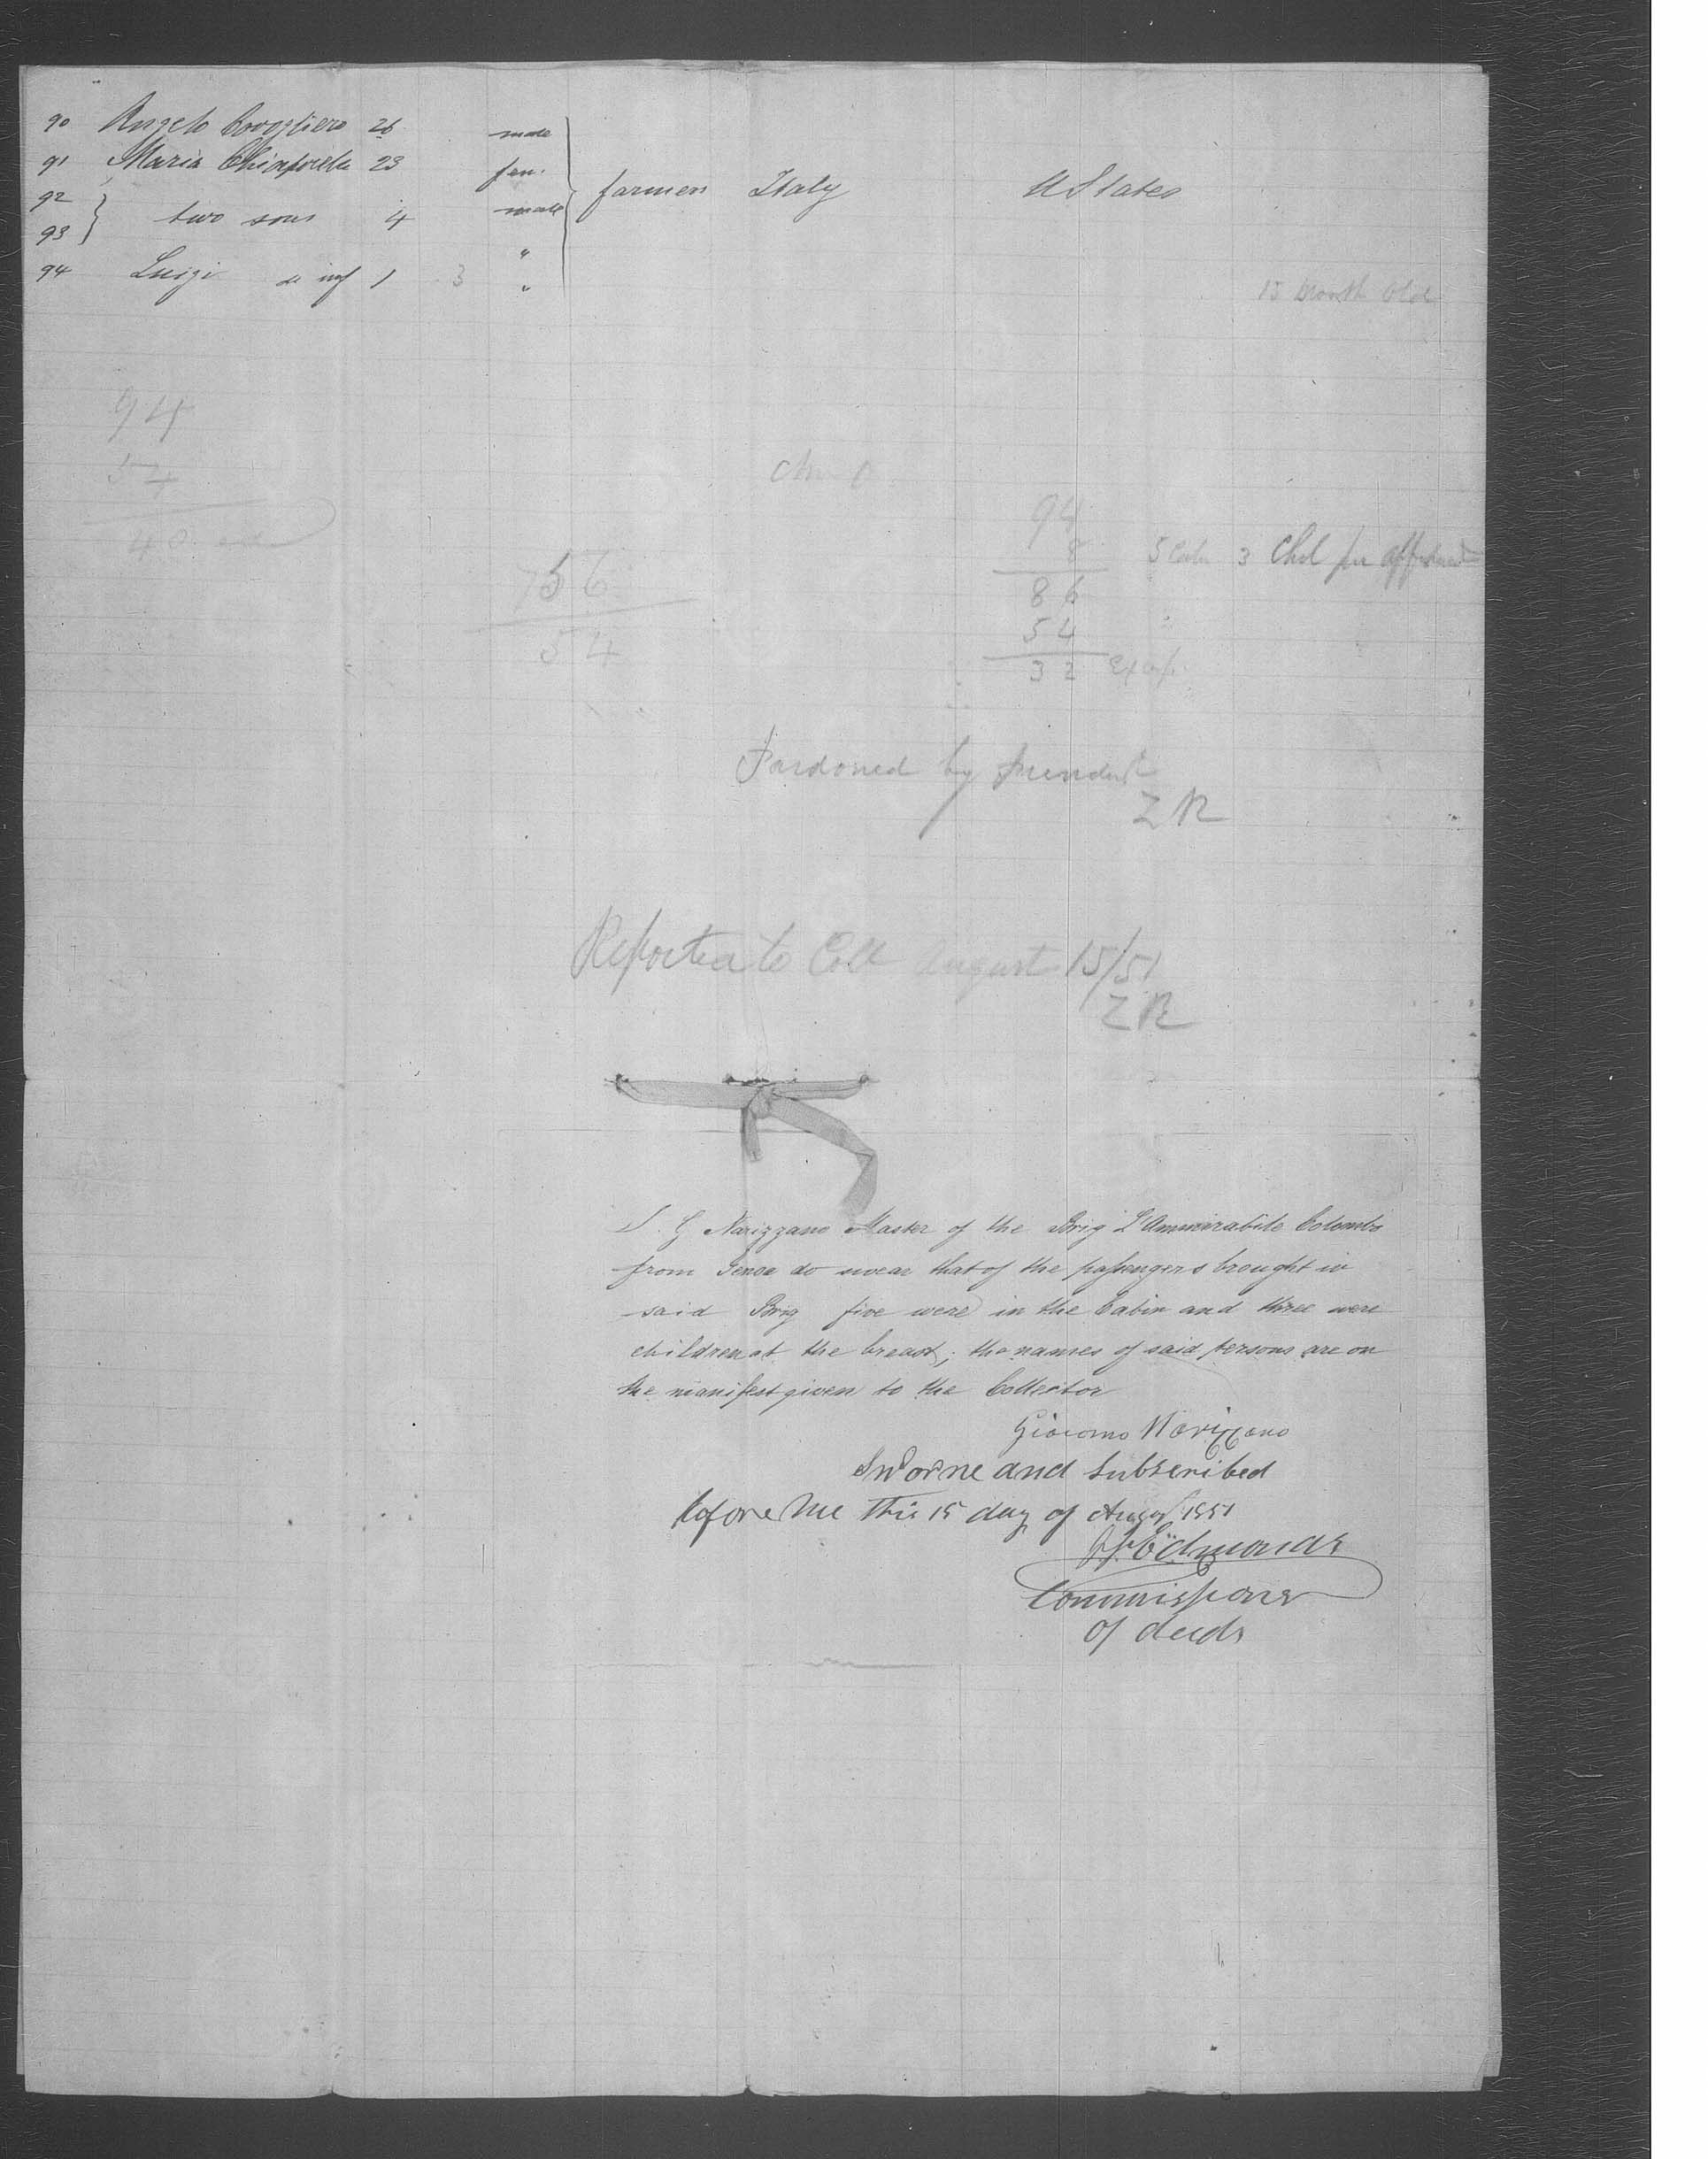 90 Angelo Covogliero 26 male
91 Maria Chiaporilla 23 fem.
92
93 } two sons 4 male farmer Italy U States
"
94 Luigi inf 1 3 "
15 Month Old
94
54
40
756
54
94
8 5 Cabn 3 Chil per affidavit
86
54
32 Excess
Pardoned by President
ZR
Reported to Coll August 15/51
ZR
I. G Narizzano Master of the Brig L'Ammirabile Colombo
from Genoa do swear that of the passengers brought in
said Brig five were in the Cabin and three were
children at the breast; the names of said persons are on
the manifest given to the Collector
Giacomo Narizzano
Sworne and Subscribed
before Me this 15 day of August 1851
Edmonds
Commissioner
of deeds